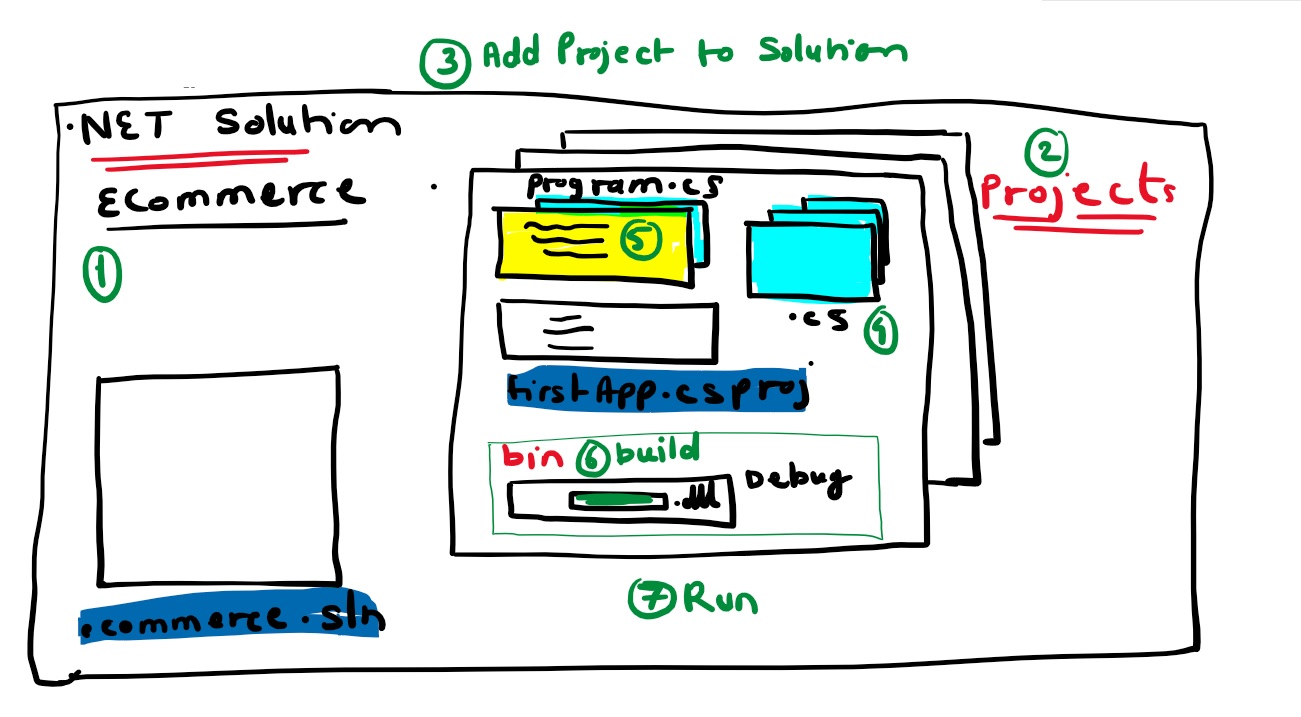 ③ Add Project to Solution
.NET Solution
ECommerce
①
② Projects
program.cs
⑤
.cs ④
firstApp.csproj
bin ⑥ build
Debug
ecommerce.sln
⑦ Run